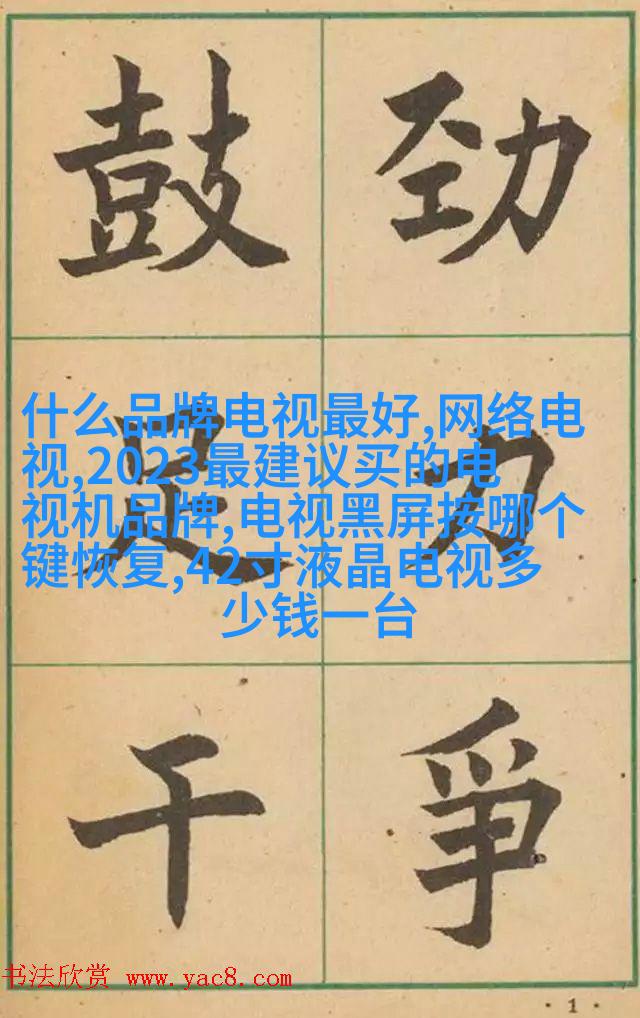 鼓足干
劲力爭
什么品牌电视最好,网络电
视,2023最建议买的电
视机品牌,电视黑屏按哪个
键恢复,42寸液晶电视多
少钱一台
书法欣赏 www.yac8.com
· 1 ·